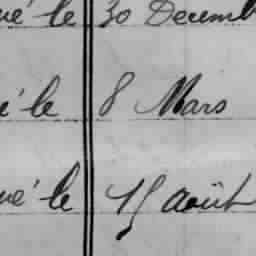 né le 30 Decemb
é le 8 Mars
né le 15 août